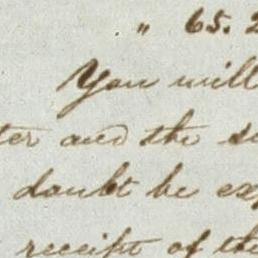 " 65.2
You will
ter and the
doubt be ex
receipt of the